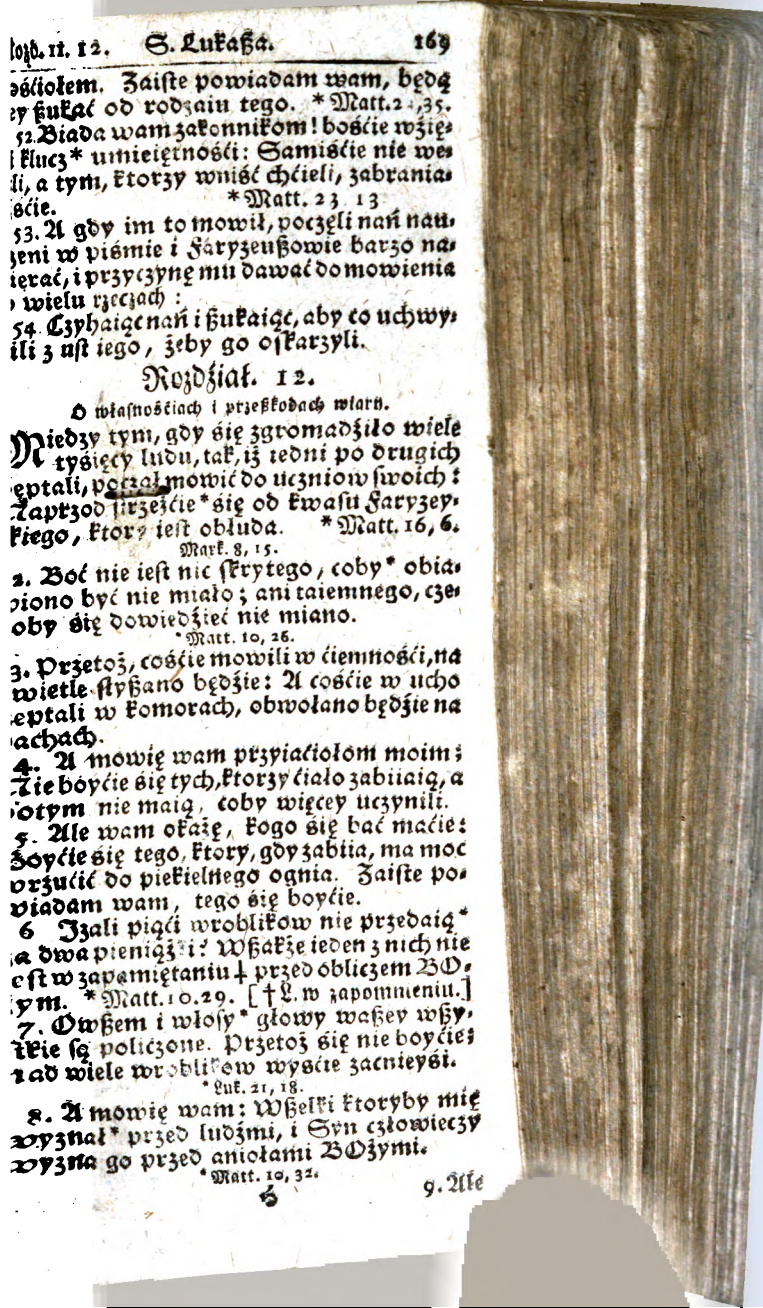 Rozd. 11. 12. S. Lukaßa. 169
ośćiołem. Zaiste powiadam wam, będą
ey ßukać od rodzaiu tego. *Matt.2 ,35.
52. Biada wam zakonnikom! bośćie wźię-
i klucz* umieiętnośći: Samiśćie nie we-
li, a tym, ktorzy wniść chćieli, zabrania-
śćie. *Matt. 23 13
53. A gdy im to mowił, poczęli nań nau-
zeni w piśmie i Faryzeußowie barzo na-
ierać, i przyczynę mu dawać do mowienia
o wielu rzeczach:
54. Czyhaiąc nań i ßukaiąc, aby co uchwy-
ili z ust iego, żeby go oskarzyli.
Rozdźiał. 12.
O własnośćiach i przeßkodach wiary.
Miedzy tym, gdy się zgromadźiło wiele
tyśięcy ludu, tak, iż iedni po drugich
eptali, począł mowić do uczniow swoich:
Naprzod strzeżćie* się od kwasu Faryzey-
kiego, ktory iest obłuda. *Matt. 16, 6.
Mark. 8, 15.
2. Boć nie iest nic skrytego, coby* obia-
wiono być nie miało; ani taiemnego, cze-
oby śię dowiedźieć nie miano.
*Matt. 10, 26.
3. Przetoż, cośćie mowili w ćiemnośći, na
wietle słyßano będźie: A cośćie w ucho
eptali w komorach, obwołano będźie na
achach.
4. A mowię wam przyiaćiołom moim;
Nie boyćie się tych, ktorzy ćiało zabiiaią, a
potym nie maią, coby więcey uczynili.
5. Ale wam okażę, kogo się bać maćie:
Boyćie się tego, ktory, gdy zabiia, ma moc
wrzućić do piekielnego ognia. Zaiste po-
wiadam wam, tego się boyćie.
6 Izali piąći wroblikow nie przedaią*
a dwa pieniążki? Wßakże ieden z nich nie
est w zapamiętaniu † przed obliczem BO-
ym. *Matt. 10. 29. [†L. w zapomnieniu.]
7. Owßem i włosy* głowy waßey wßy-
tkie są policzone. Przetoż się nie boyćie;
nad wiele wroblikow wyśćie zacnieyśi.
*Luk. 21, 18.
8. A mowię wam: Wßelki ktoryby mię
wyznał* przed ludźmi, i Syn człowieczy
wyzna go przed aniołami BOżymi.
*Matt. 10, 32.
H 9. Ale